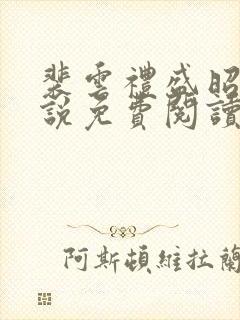 裴雲禮盛昭
說免費閱讀
阿斯頓維拉蘭